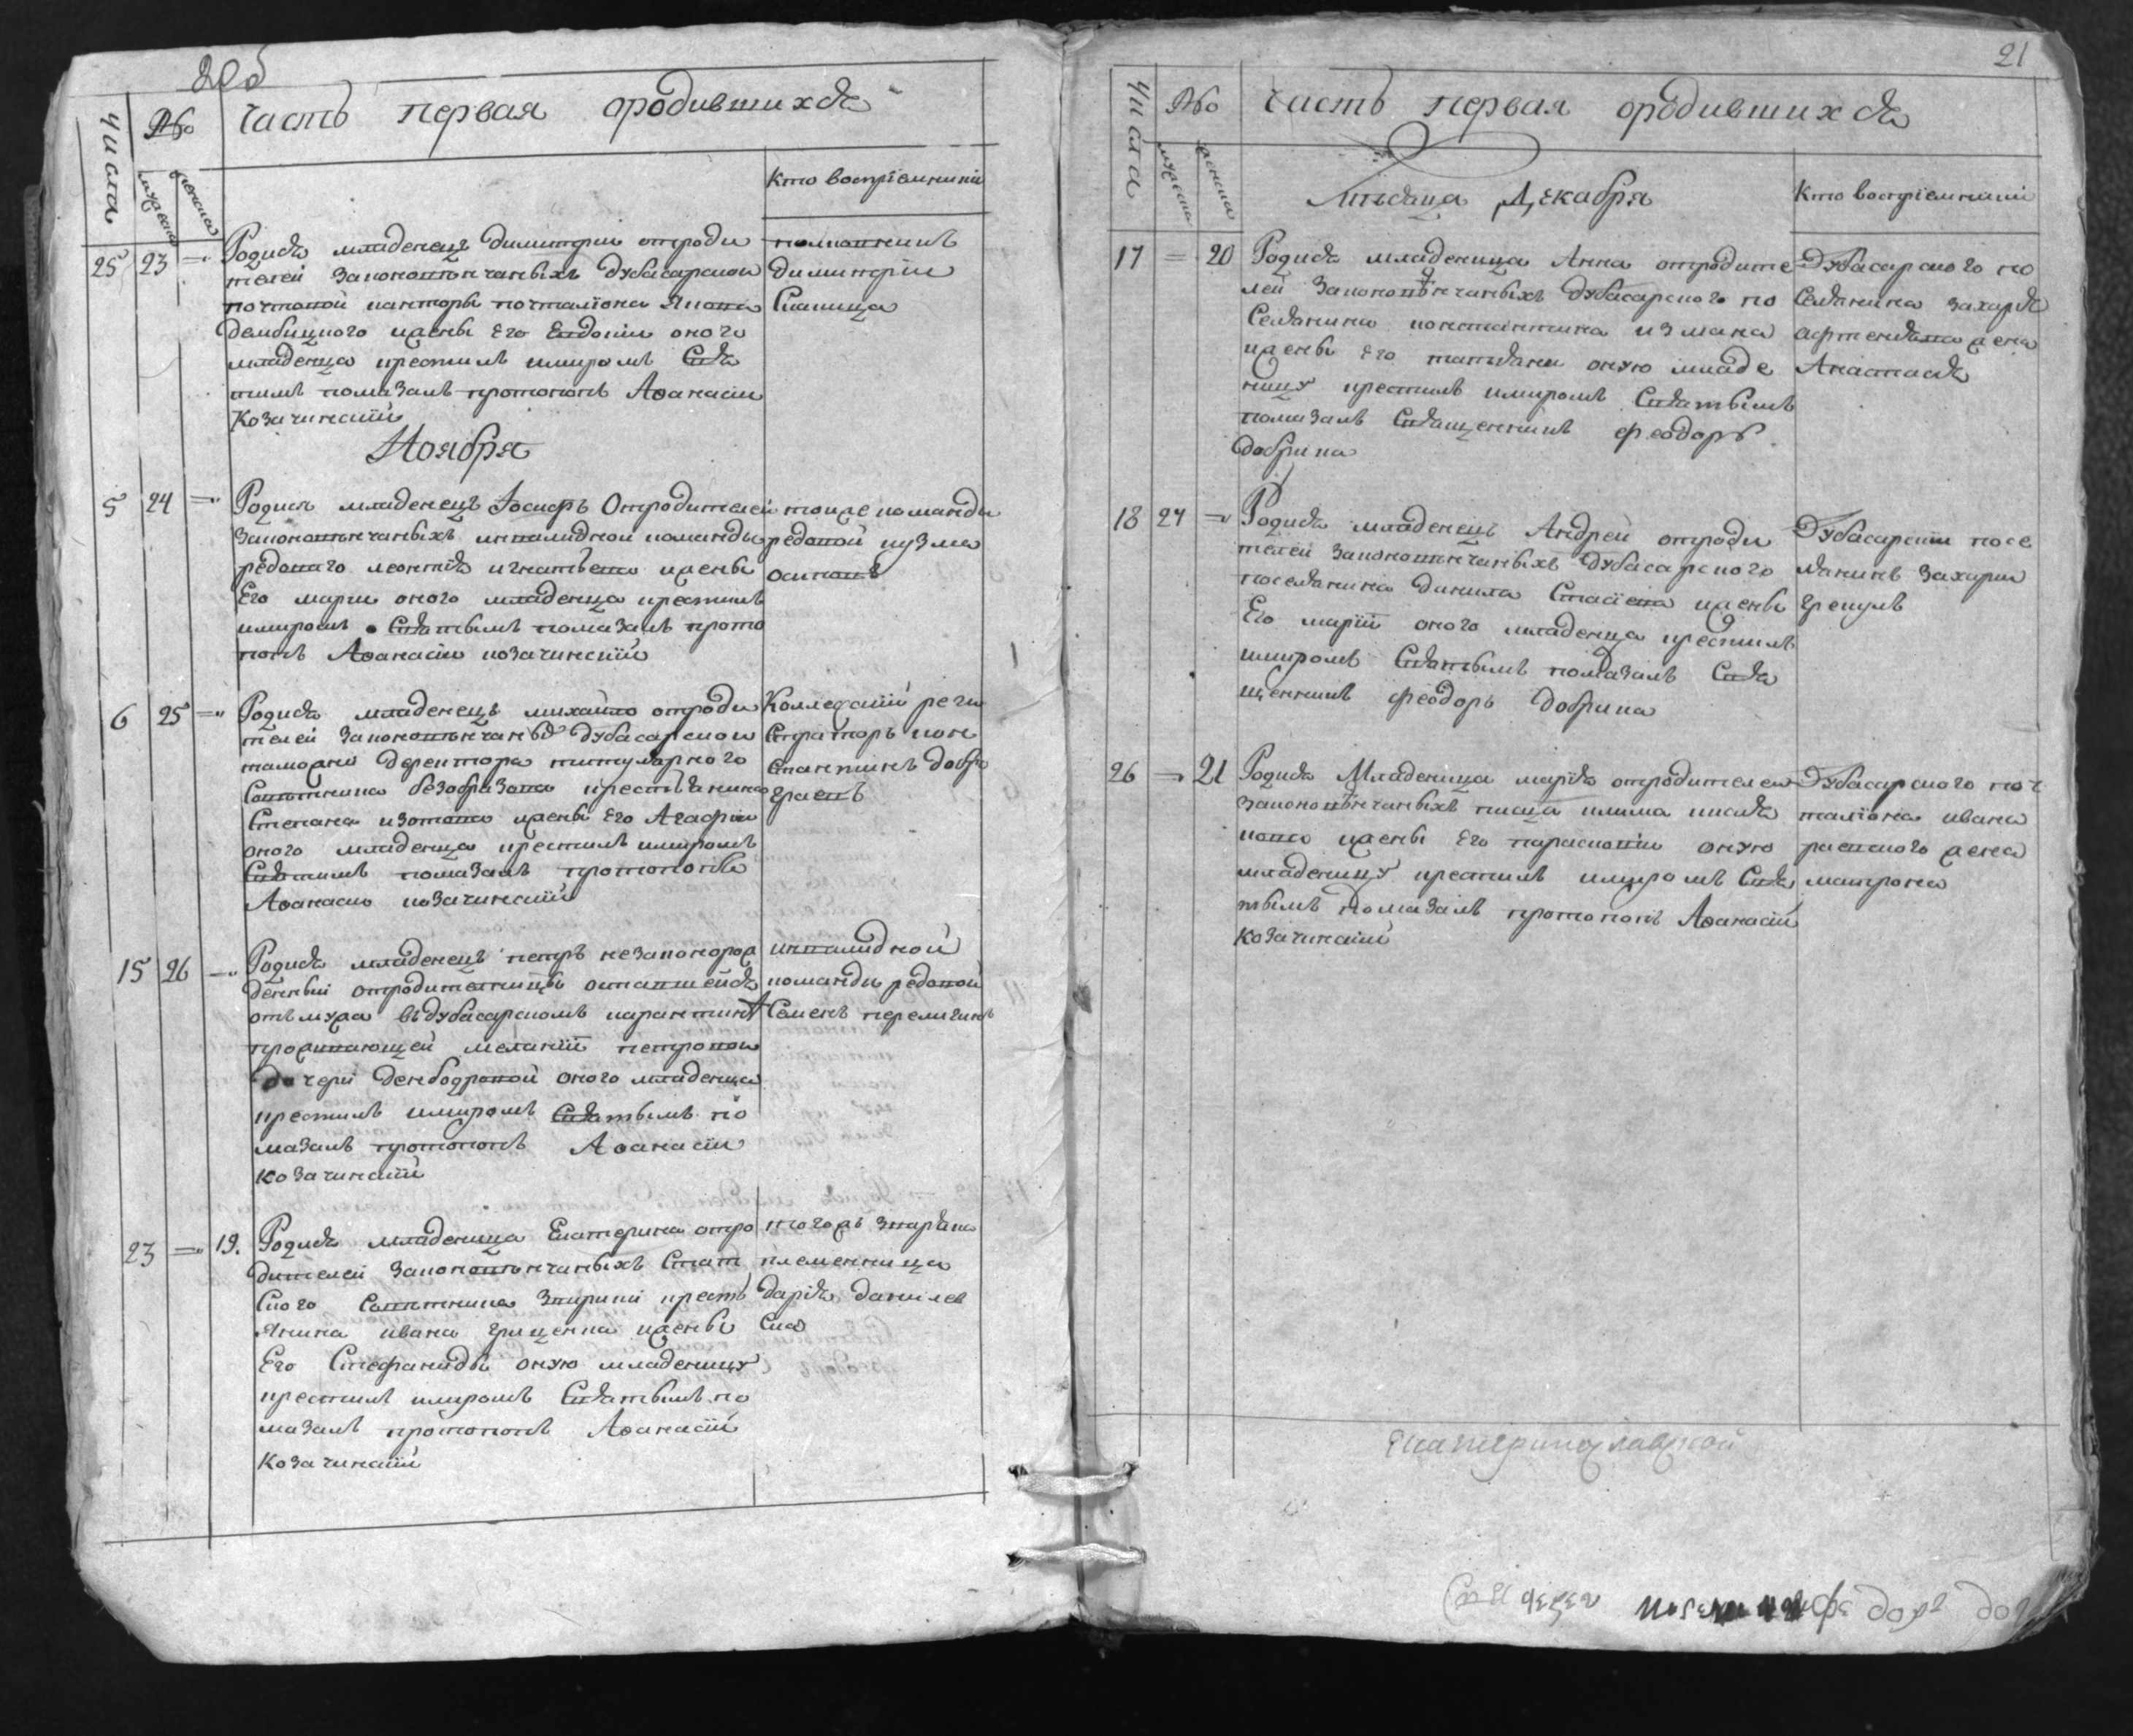 20об
числа
№
часть первая ородившихся
мужеска
женска
кто воспріемники
25 23 =
Родися младенецъ Димитрии отроди
телей законовѣнчаныхъ дубасарской
почтовой канторы почталiона Якова
Дембицкого жены Его Евдокiи оного
младенца крестилъ имиромъ Свя
тимъ помазалъ протопопъ Аѳанасiи
Козачинскiй
полковникъ
Димитрiи
Скалица
Ноября
5 24 =
Родися младенецъ Iосифъ Отродителей
законовѣнчаныхъ инвалидной команды
рядового леонтiя игнатьева жены
Его марiи оного младенца крестилъ
имиромъ Святымъ помазалъ прото
попъ Аѳанасiи козачинскiй
тоиже команды
рядовой кузма
осиповъ
6 25 =
Родися младенецъ михайло отроди
телей законовѣнчаныхъ дубасарской
таможни директора титулярного
Совѣтника безобразова крестьянина
Степана изотова жены Его Агафiи
оного младенца крестилъ имиромъ
Святимъ помазалъ протопопъ
Аѳанасiи козачинскiй
Колежскiй реги
Страторъ кон
стантинъ добро
граевъ
15 26 =
Родися младенецъ петръ незаконорож
денный отродителницы оставшейся
отъ мужа въ дубасарскомъ карантинѣ
проживающей меланiи петровой
дочери Денбодровой оного младенца
крестилъ имиромъ Святымъ по
мазалъ протопопъ Аѳанасiи
козачинскiй
инвалидной
команды рядовой
Семенъ переличинъ
23 = 19.
Родися младеница Екатерина отро
дителей законовѣнчаныхъ Стат
ского Совѣтника Згирики кресть
янина ивана грищенка жены
Его Стефаниды оную младеницу
крестилъ имиромъ Святымъ по
мазалъ протопопъ Аѳанасiй
козачинскiй
тогожъ
племенница
дарiя данилев
ска
21
числа
№
часть первая ородившихся
мужеска
женска
Мѣсяца Декабря
кто воспрiемники
17 = 20
Родися младеница Анна отродите
лей законовѣнчаныхъ дубасарского по
Селянина константина измана
жены Его татiяны оную младе
ницу крестилъ имиромъ Святымъ
помазалъ Священникъ феодоръ
Добрика
Дубасарского по
Селянина захарiя
жена
Анастасiя
18 27 =
Родися младенецъ Андрей отроди
телей законовѣнчаныхъ дубасарского
поселянина данила Стасiева жены
Его марiи оного младенца крестилъ
имиромъ Святымъ помазалъ Свя
щенникъ феодоръ Добрика
Дубасарскiи посе
лянинъ захарiи
грекулъ
26 = 21
Родися Младеница марiя отродителей
законовѣнчаныхъ писца клима кися
кова жены Его параскевiи оную
младеницу крестилъ имиромъ Свя
тымъ помазалъ протопопъ Аѳанасiй
козачинскiй
Дубасарского поч
талiона ивана
раевского жена
матрона
Екатеринославской